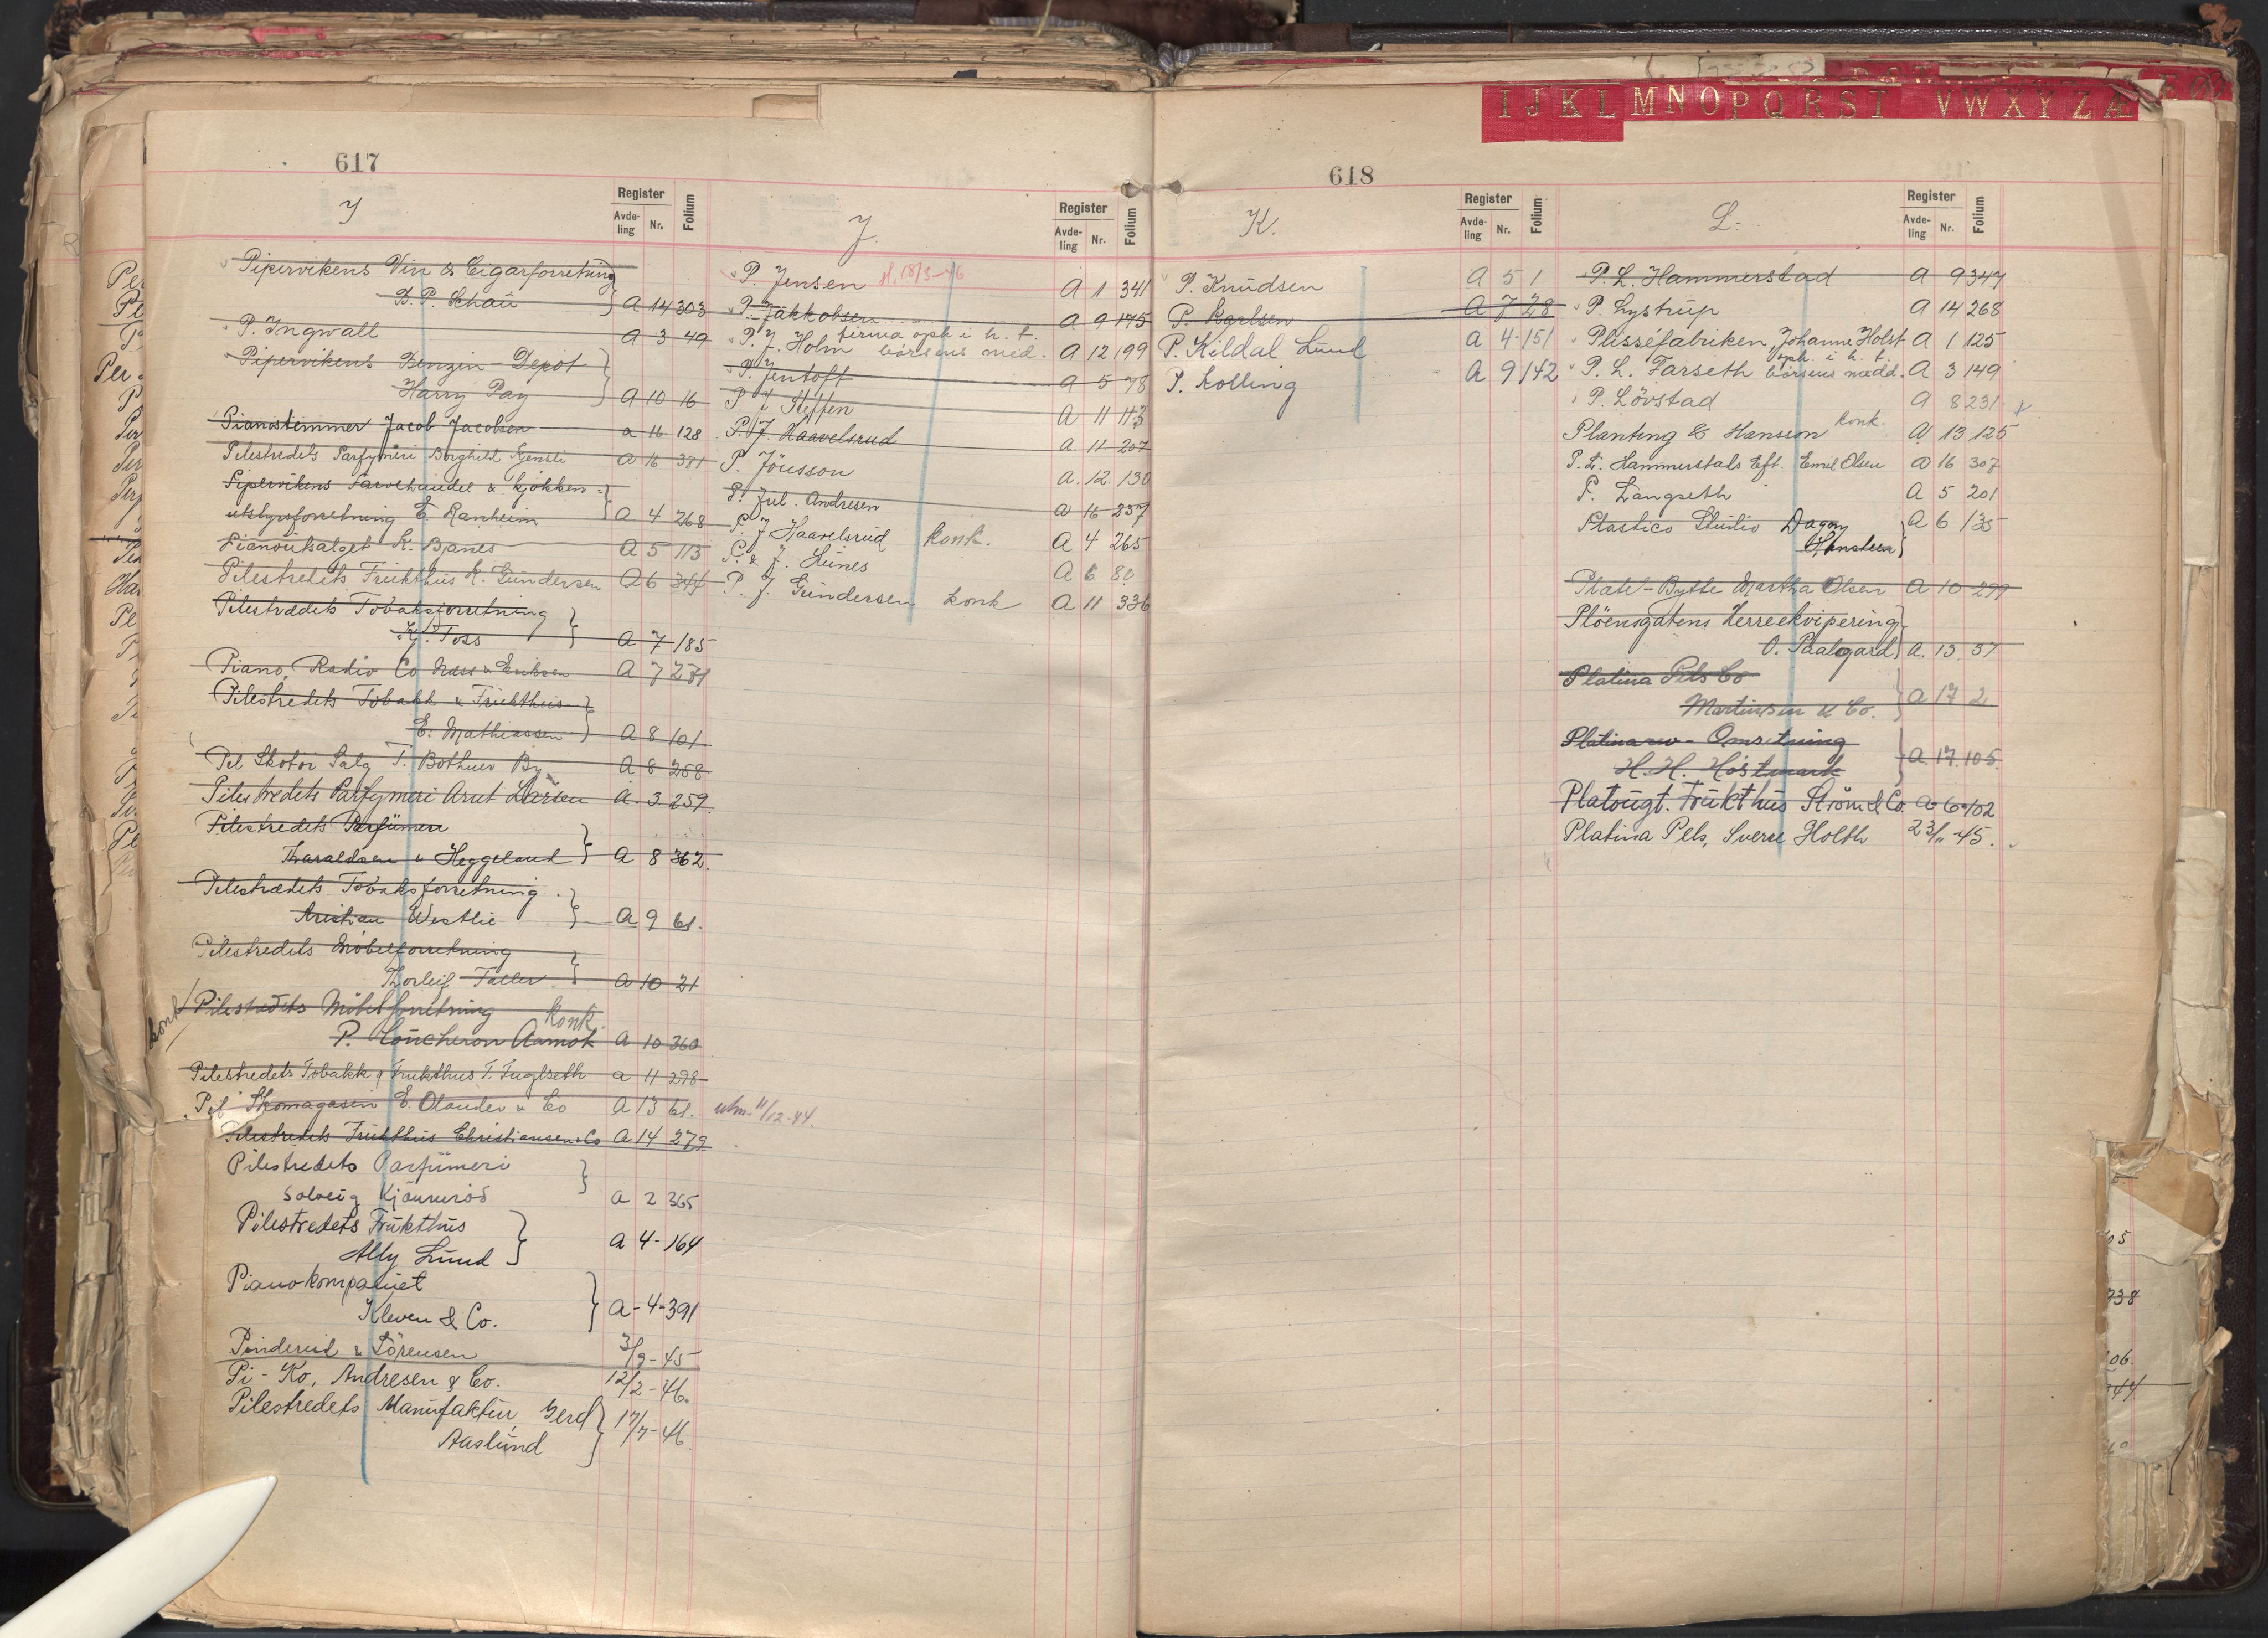 I J K L M N O P Q R S T V W X Y Z Æ
617
I
Register
Avde-
ling
Nr.
Folium
Pipervikens Vin & Cigarforretning
B. P. Schau } A 14 303
P. Ingwall A 3 49
Pipervikens Benzin-Depot
Harry Pay } A 10 16
Pianostemmer Jacob Jacobsen A 16 128
Pilestredets Parfymeri Borghild A 16 381
Pipervikens Farvehandel & kjökken-
utstyrsforretning E. Ranheim } A 4 268
Pianoutsalget K. Bjanes A 5 113
Pilestredets Frukthus K. Gundersen A 6 344
Pilestrædets Tobaksforretning
Kr. Foss } A 7 185
Piano, Radio Co Næss & Eriksen A 7
Pilestredets Tobakk & Frukthus
E. Mathiassen } A 8 101
Pel Skotöi Salg T. Bothner By A 8 258
Pilestredets Parfymeri Arnt Larsen A. 3. 259.
Pilestredets Parfümeri
Haraldsen & Heggelund } A 8 362.
Pilestrædets Tobaksforretning
Kristian Westlie } A 9 61.
Pilestredets Möbelforretning
Thorleif Faller } A 10 21
konk
Pilestredets Möbelforretning konk.
P. Coucheron Aamot A 10 360
Pilestredets Tobakk & Frukthus T. Fuglseth A 11 298
Pil Skomagasin E. Olander & Co A 13 61. utm. 11/12-44.
Pilestredets Frukthus Christiansen & Co A 14 279
Pilestredets Parfümeri
Solveig } A 2 365
Pilestredets Frukthus
Ally Lund } A 4-164
Pianokompaniet
Kleven & Co. } A-4-391
Pinderud & Sörensen 3/9-45
Pi-Ko, Andresen & Co. 12/2-46.
Pilestredets Manufaktur, Gerd
Aaslund } 17/7-46.
J.
Register
Avde-
ling
Nr.
Folium
P. Jensen sl. 18/3-46 A 1 341
P. Jakkobsen A 9 175
firma oph i h. t.
P. J. Holm börsens med. A 12 199
P. Jentoft A 5 78
P. J. Steffen A 11 113
P. J. Haavelsrud A 11 207
P. Jönsson A. 12. 130
P. Jul. Andresen A 16 257
P. J Haavelsrud konk. A 4 265
P. & J. Hunes A 6 80
P. J. Gundersen konk A 11 336
618
K.
Register
Avde-
ling
Nr.
Folium
P. Knudsen A 5 1
P. Karlsen A 7 28
P. Kildal Lund A 4-151
P. Kolling A 9 142
L.
Register
Avde-
ling
Nr.
Folium
P. L. Hammerstad A 9 347
P. Lystrup A 14 268
Plisséfabriken, Johanne Holst A 1 125
oph. i h. t.
P. L. Farseth börsens medd. A 3 149
P. Lövstad A 8 231
Planting & Hansson konk. A 13 125
P. L. Hammerstads Eft. Emil Olsen A 16 307
P. Langseth A 5 201
Plastico Studio Dagny
Hansteen } A 6 135
Plate-Bytte Martha Olsen A 10 299
Plöensgatens Herreekvipering
O. Paalgard } A. 13. 37
Platina Pels Co
Martinsen & Co. } A 17 2
Platinarev-Omsetning
H. H. Höstmark } A 17. 105.
Platougt. Frukthus Ström & Co A-6-102
Platina Pels, Sverre Holth 23/11-45.